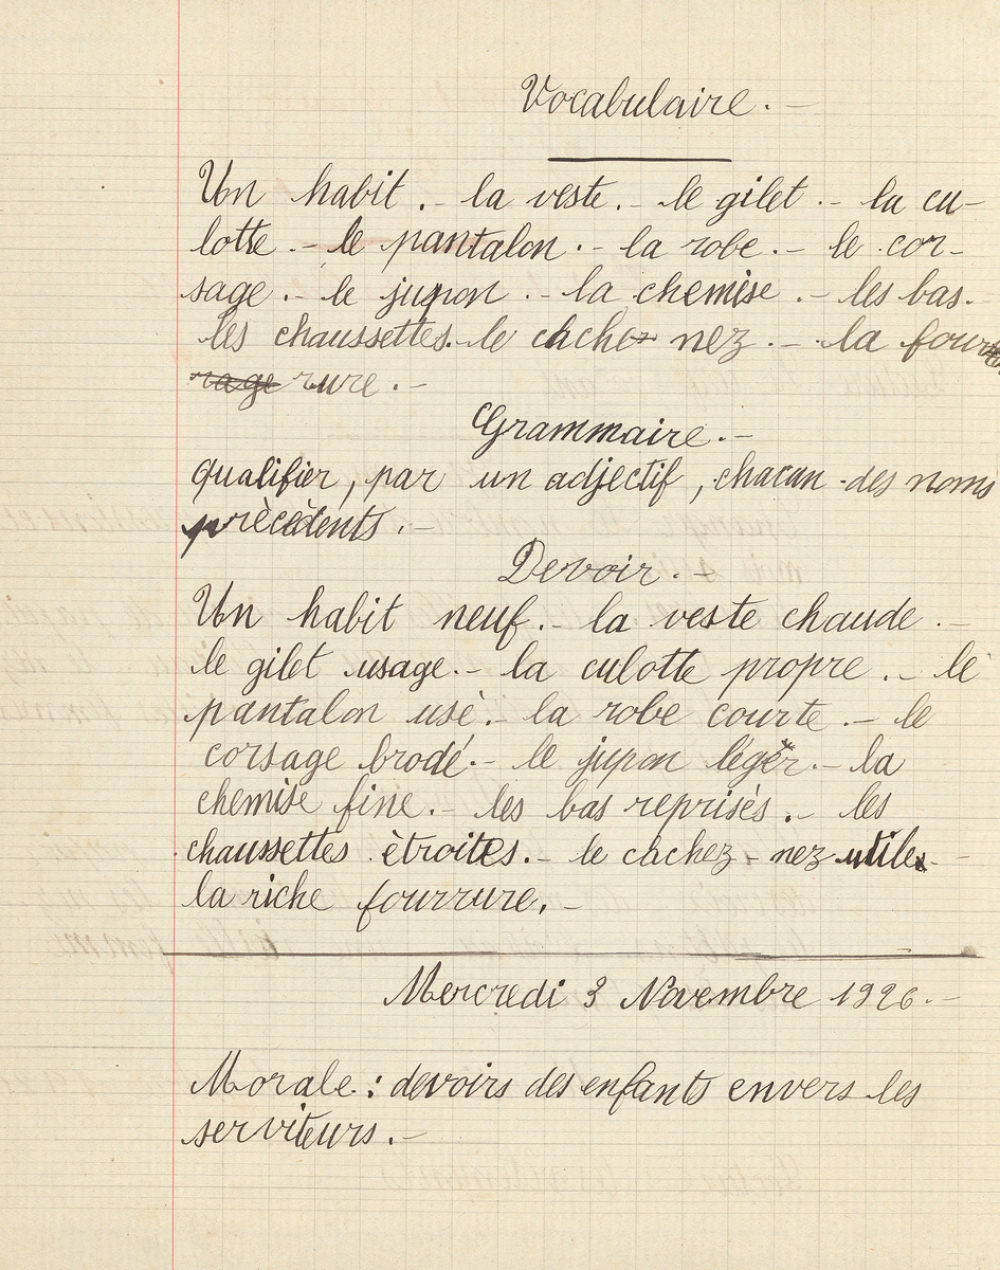 Vocabulaire. -
Un habit. - la veste. - le gilet. - la cu-
lotte. - le pantalon. - la robe. - le cor-
sage. - le jupon. - la chemise. - les bas.
les chaussettes. - le cache nez. - la four
rage rure. -
Grammaire. -
qualifier, par un adjectif, chacun des noms
prècèdents. -
Devoir. -
Un habit neuf. - la veste chaude. -
le gilet usage. - la culotte propre. - le
pantalon usè. - la robe courte. - le
corsage brodé. - le jupon léger. - la
chemise fine. - les bas reprisés. - les
chaussettes ètroites. - le cachez-nez utile -
la riche fourrure. -
Mercredi 3 Novembre 1926. -
Morale : devoirs des enfants envers les
serviteurs. -